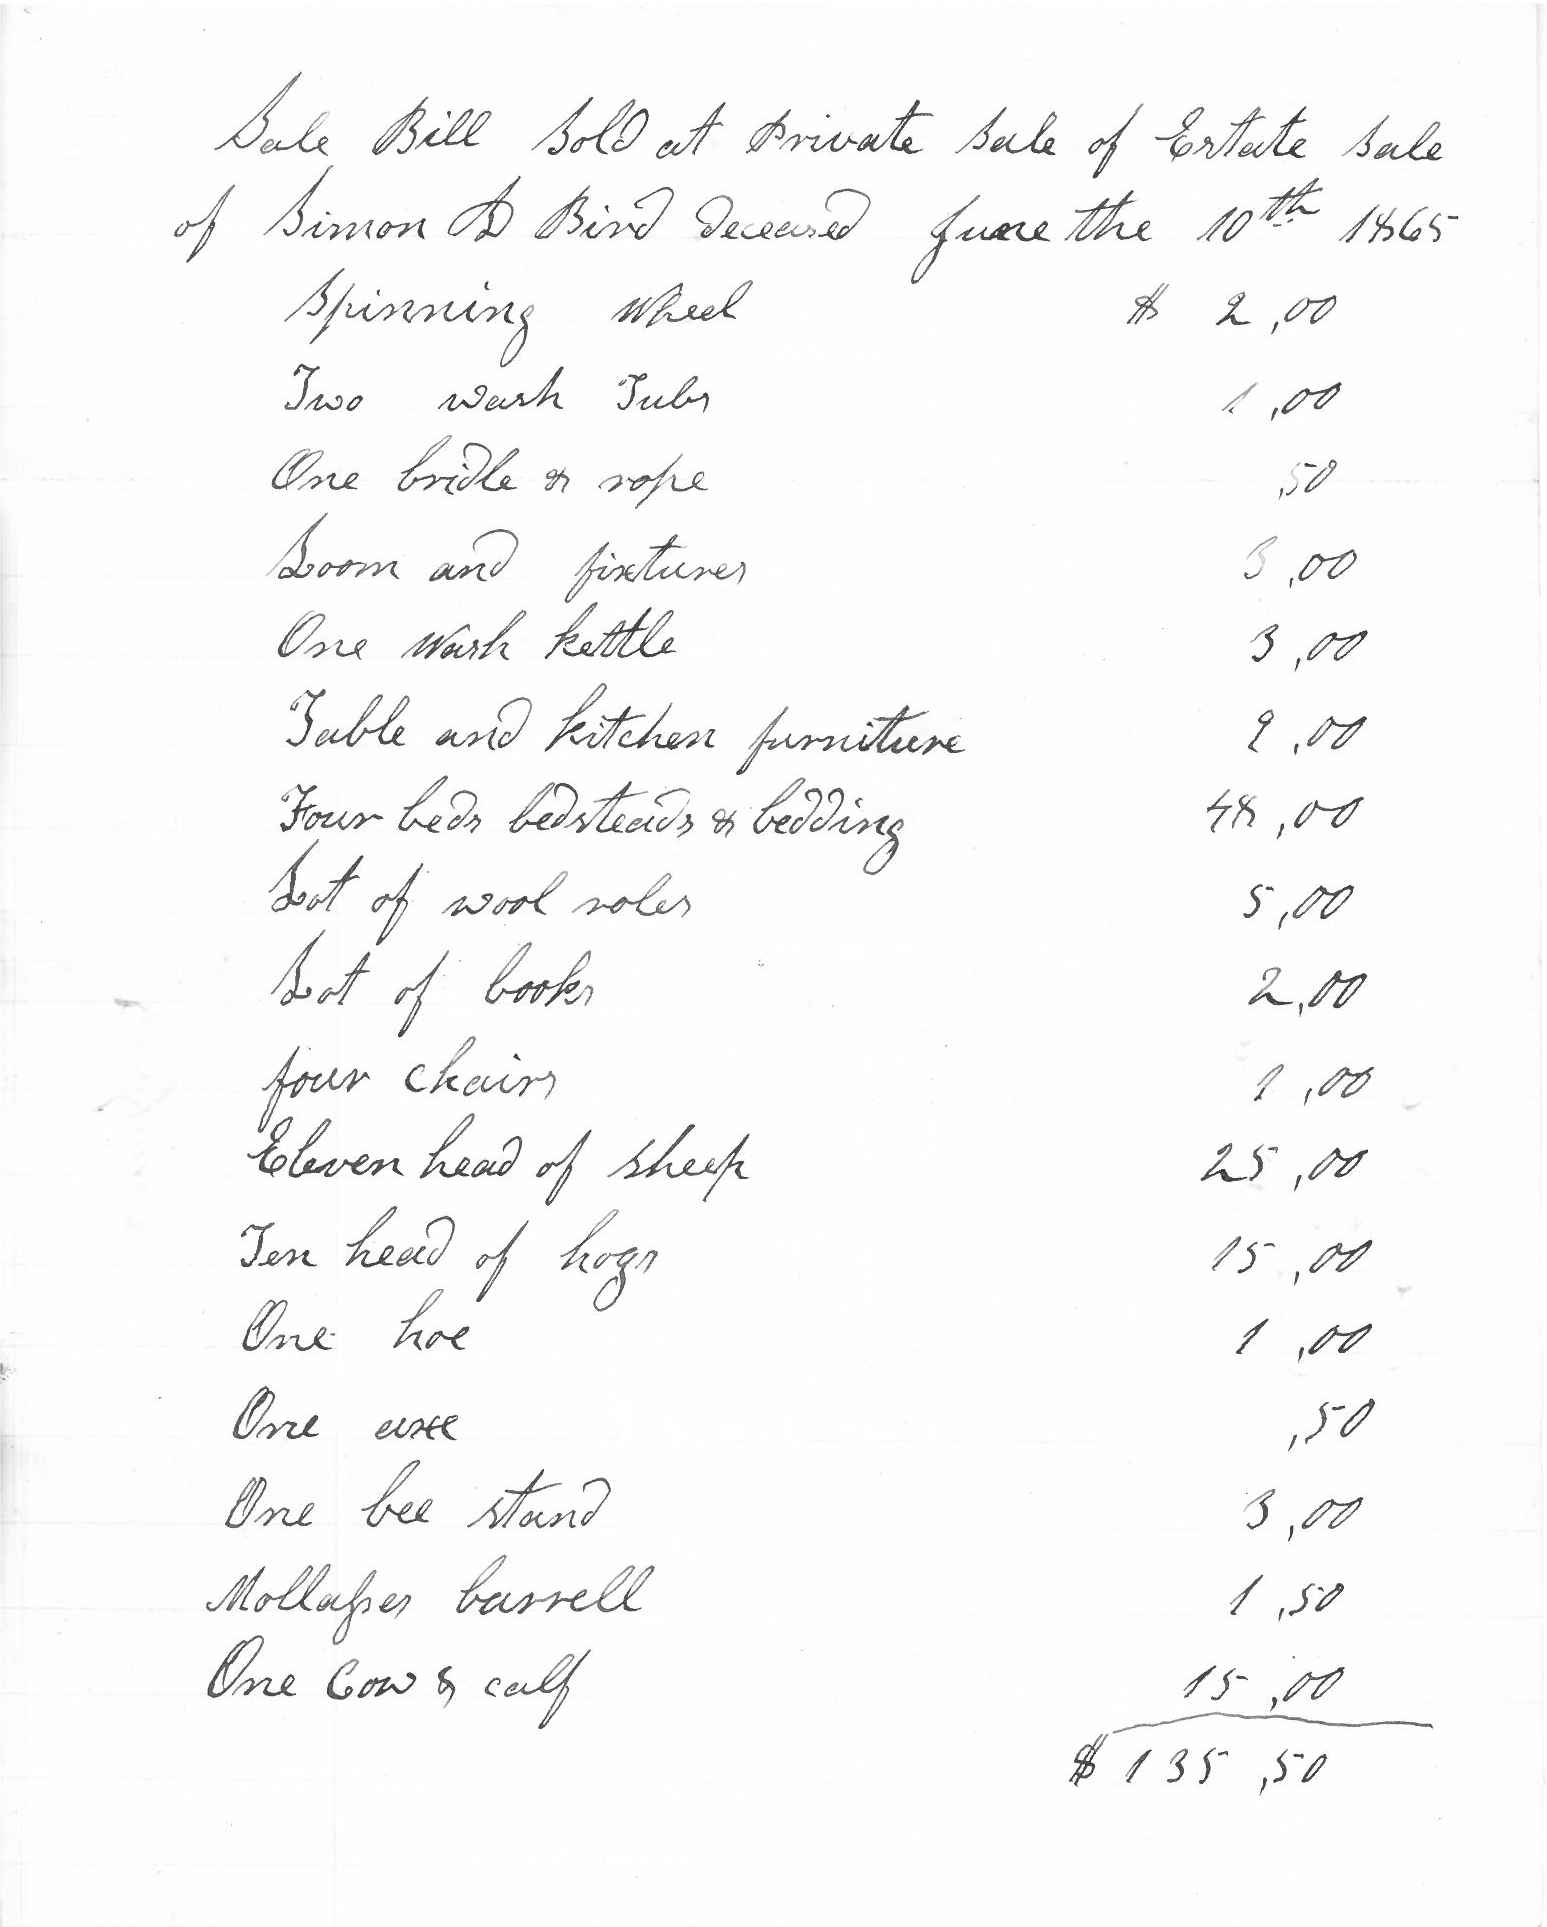 Sale Bill Sold at Private Sale of Estate Sale
of Simon D Bird deceased June the 10th 1865
Spinning Wheel $ 2,00
Two wash Tubs 1,00
One bridle & rope ,50
Loom and fixtures 3,00
One Wash kettle 3,00
Table and kitchen furniture 9,00
Four beds bedsteads & bedding 48,00
Lot of wool roles 5,00
Lot of books 2,00
four chairs 1,00
Eleven head of sheep 25,00
Ten head of hogs 15,00
One hoe 1,00
One axe ,50
One bee stand 3,00
Mollasses barrell 1,50
One Cow & calf 15,00
$ 135,50